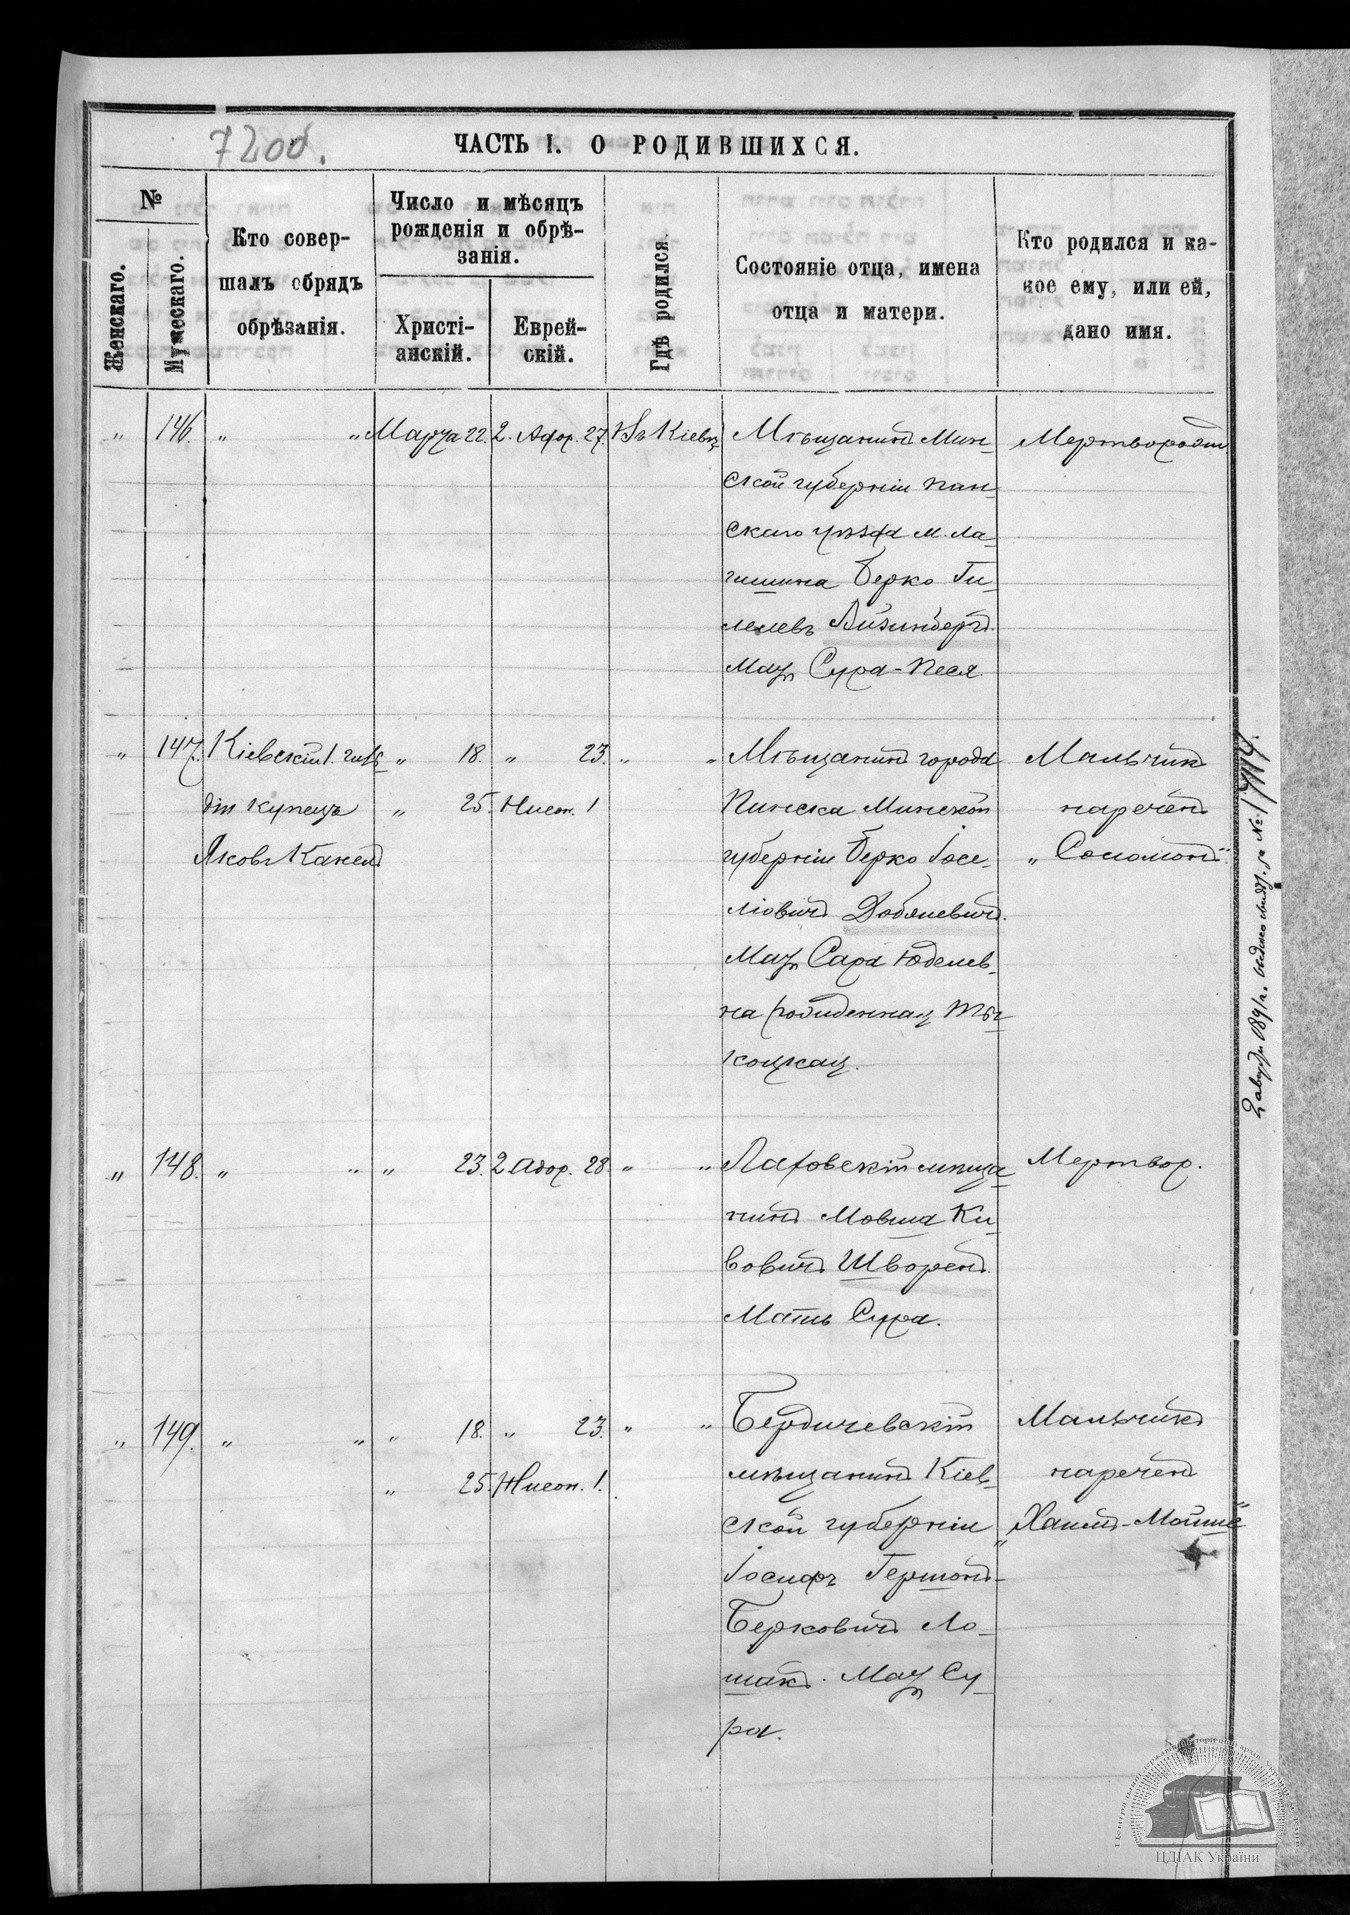 7200.
ЧАСТЬ I. О РОДИВШИХСЯ.
№
Женскаго.
Мужескаго.
Кто совер-
шалъ обрядъ
обрѣзанія.
Число и мѣсяцъ
рожденія и обрѣ-
занія.
Христі-
анскій.
Еврей-
скій.
Гдѣ родился.
Состояніе отца, имена
отца и матери.
Кто родился и ка-
кое ему, или ей,
дано имя.
„ 146. „ „ Марта 22. 2. Адор. 27. Въ Кіевѣ
Мѣщанинъ Мин-
ской губерніи Пин-
скаго уѣзда м. Ла-
гишина Берко Ги-
лелевъ Айзинбергъ.
Мать Сура-Песя.
Мертворожд
„ 147. Кіевскій 1. гиль
діи купецъ
Яковъ Канелъ
„ 18. „ 23. „ „
„ 25. Нисон. 1
Мѣщанинъ города
Пинска Минской
губерніи Берко Іосе-
ліовичъ Добяневичъ.
Мать Сара Юделев-
на рожденная Ты-
коцкая.
Мальчикъ
нареченъ
„Соломонъ“.
„ 148. „ „ „ 23. 2 Адор. 28. „ „
Лаховскій мѣща-
нинъ Мовша Ки-
вовичъ Шворенъ.
Мать Сура.
Мертвор.
„ 149. „ „ „ 18. „ 23. „ „
„ 25. Нисон. 1.
Бердичевскій
мѣщанинъ Кіев-
ской губерніи
Іосифъ Гершонъ-
Берковичъ Ло-
шакъ. Мать Су-
ра.
Мальчикъ
нареченъ
„Хаимъ-Мойше“
1891 г. выдано свид. за №
ЦДІАК України